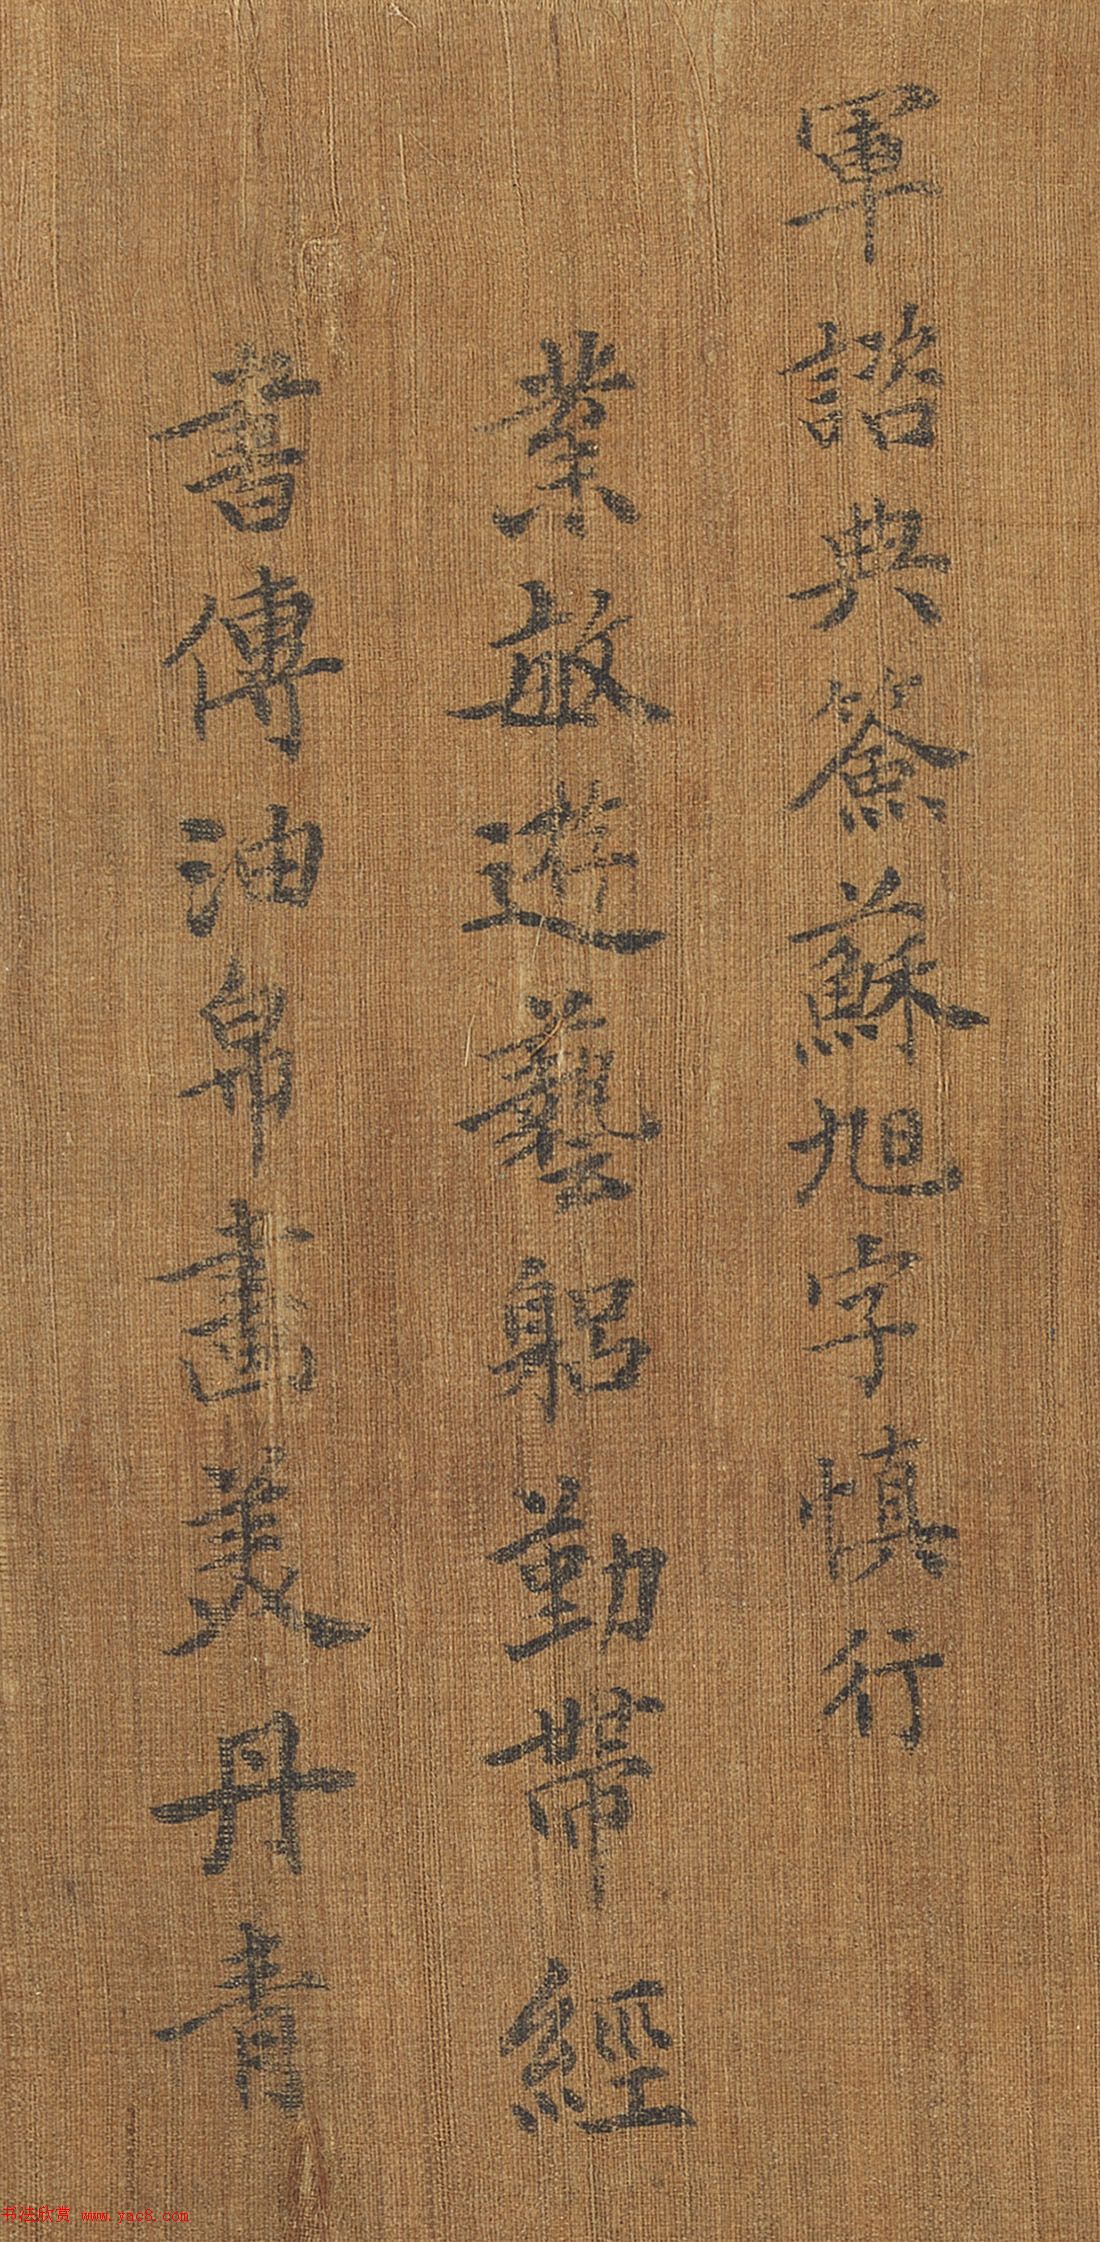 軍諮典簽蘇旭字慎行
業敏遊藝躬勤帶經
書傳油帛畫美丹青
书法欣赏 www.yac8.com